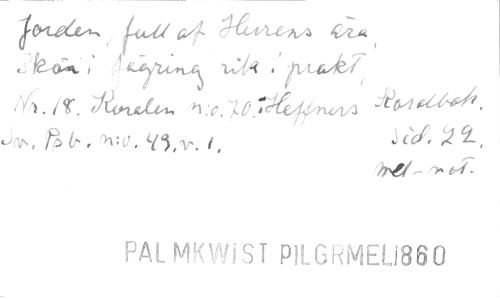 Jorden, full af Herrens ära,
Skön i fägring rik i prakt,
Nr. 18. Koralen n:o. 70. i Heffners Koralbok.
Sv. Psb. n:o. 49, v. 1. Sid. 22.
mel-not.
PALMKWIST PILGRMEL1860